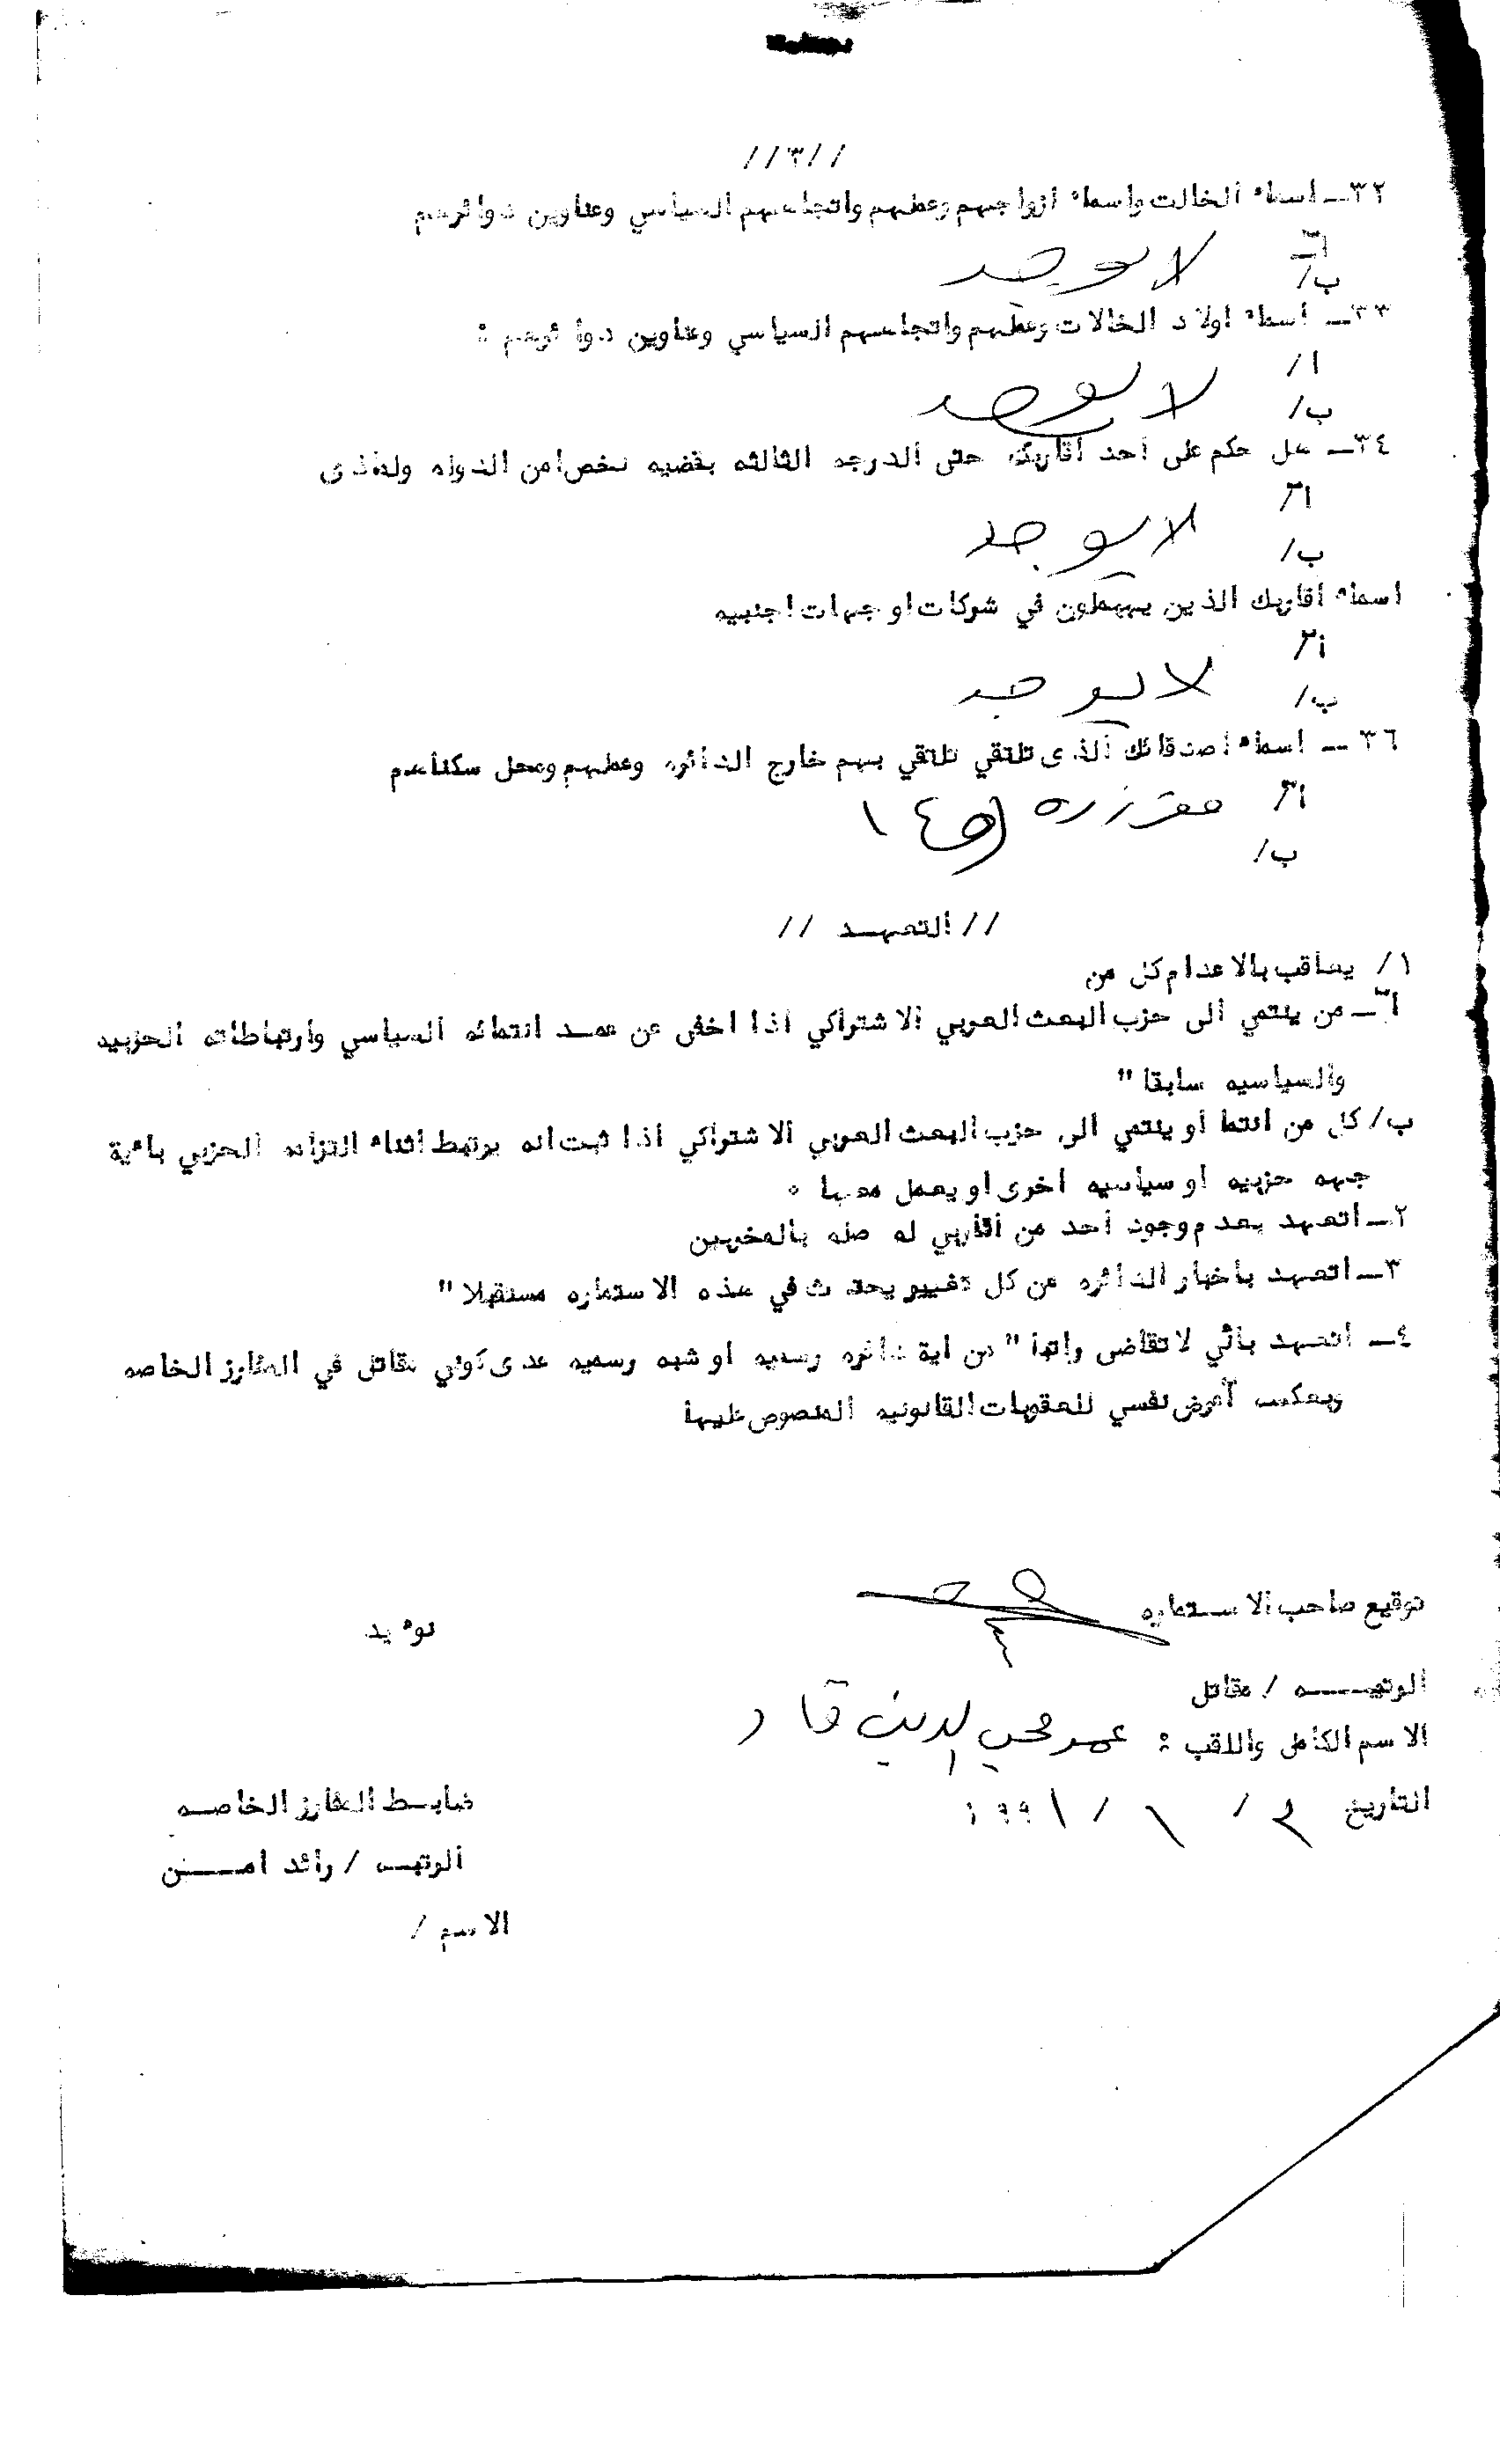 //٣//
٣٢ـ اسماء الخالت واسماء ازواجهم وعملهم واتجاههم السياسي وعناوين دوائرهم
أ/
ب/ لا يوجد
٣٣ـ اسماء اولاد الخالات وعملهم واتجاههم السياسي وعناوين دوائرهم :
ا/
ب/ لا يوجد
٣٤ـ هل حكم على احد اقاربك حتى الدرجه الثالثه بقضيه تخص امن الدوله ولماذى
أ/
ب/ لا يوجد
اسماء اقاربك الذين يعملون في شركات او جهات اجنبيه
أ/
ب/ لا يوجد
٣٦ـ اسماء اصدقائك الذى تلتقي تلتقي بهم خارج الدائره وعملهم ومحل سكناهم
أ/ مفرزه
ب/
// التعهد //
١/ يعاقب بالاعدام كل من
أـ من ينتمي الى حزب البعث العربي الاشتراكي اذا اخفى عن عمد انتمائه السياسي وارتباطاته الحزبيه
والسياسيه سابقا "
ب/ كل من انتما أو ينتمي الى حزب البعث العربي الاشتراكي اذا ثبت انه يرتبط اثناء التزامه الحزبي باية
جهه حزبيه او سياسيه اخرى او يعمل معها ٠
٢ـ اتعهد بعدم وجود احد من اقاربي له صله بالمخربين
٣ـ اتعهد باخبار الدائره عن كل تغيير يحدث في هذه الاستماره مستقبلا "
٤ـ اتعهد باني لا تقاضى راتبا " من اية دائره رسميه او شبه رسميه عدى كوني مقاتل في المفارز الخاصه
وبعكسه أعرض نفسي للعقوبات القانونيه المنصوص عليها
توقيع صاحب الاستماره
نوءيد
الرتبه / مقاتل
الاسم الكامل واللقب : عمر محي الدين قادر
التاريخ ٢ / ١ / ١٩٩١
ضابط المفارز الخاصه
الرتبه / رائد امن
الاسم /